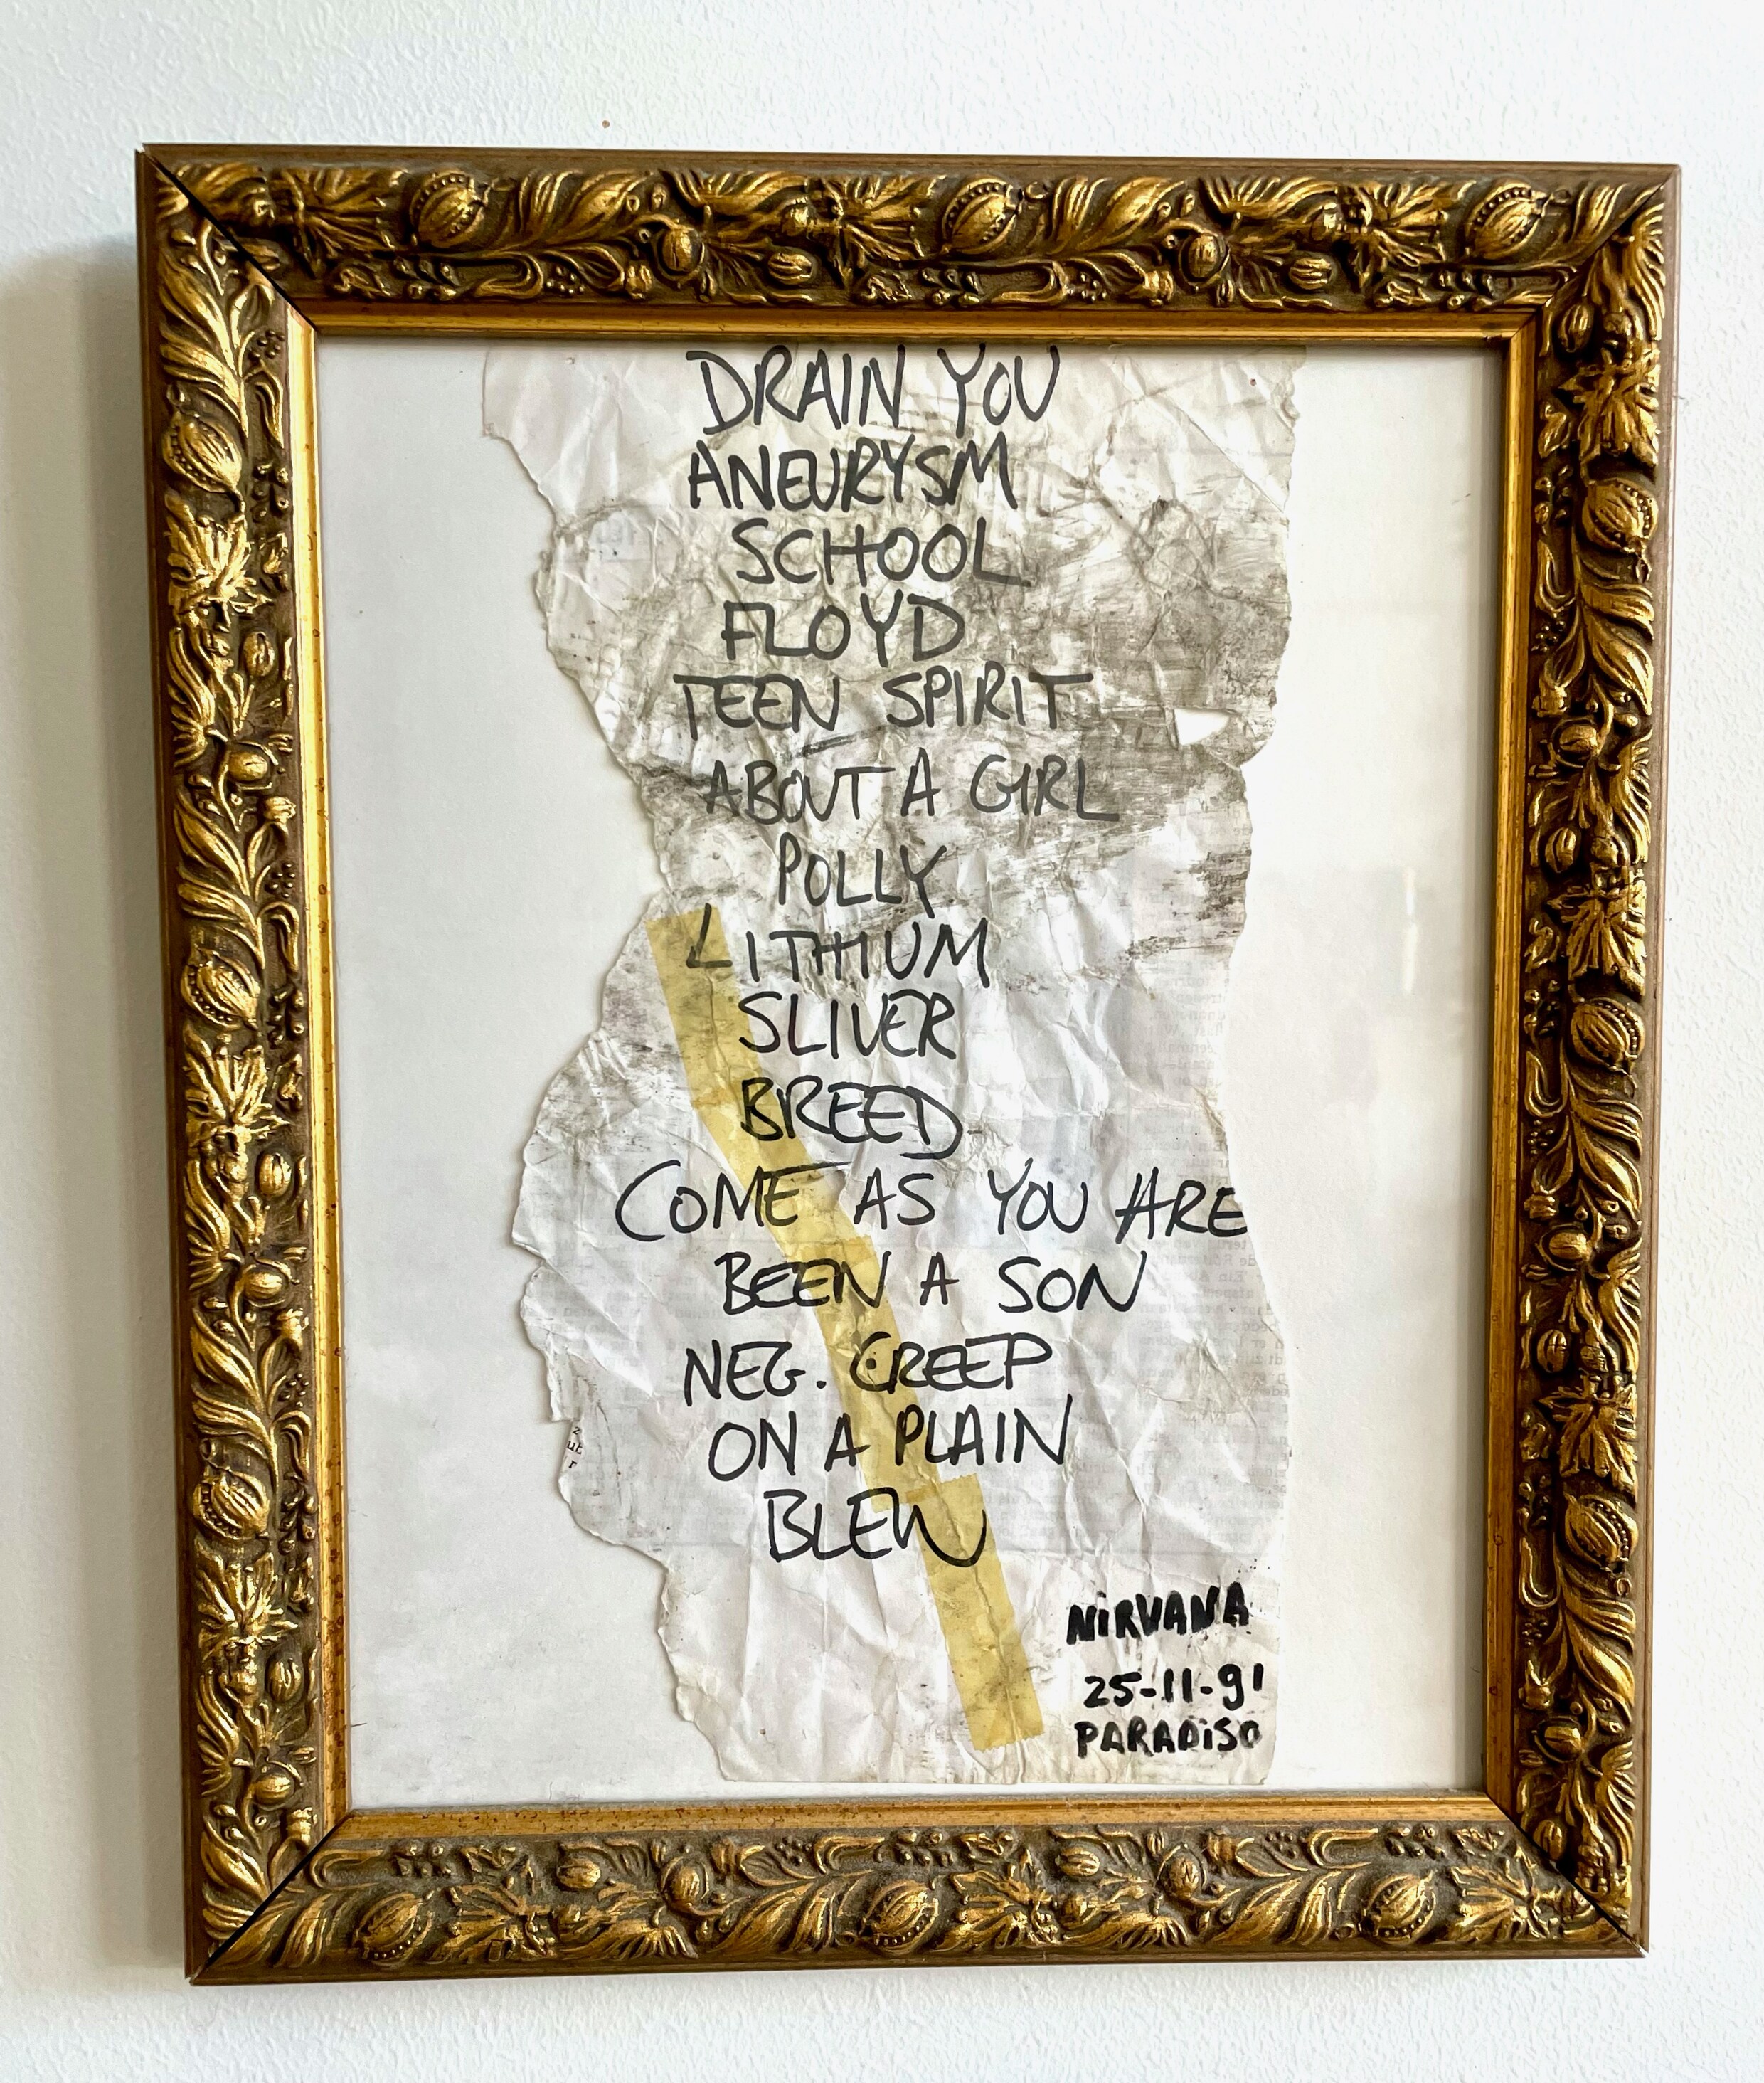 DRAIN YOU
ANEURYSM
SCHOOL
FLOYD
TEEN SPIRIT
ABOUT A GIRL
POLLY
LITHIUM
SLIVER
BREED
COME AS YOU ARE
BEEN A SON
NEG. CREEP
ON A PLAIN
BLEW
NiRVANA
25-11-91
PARADiSO